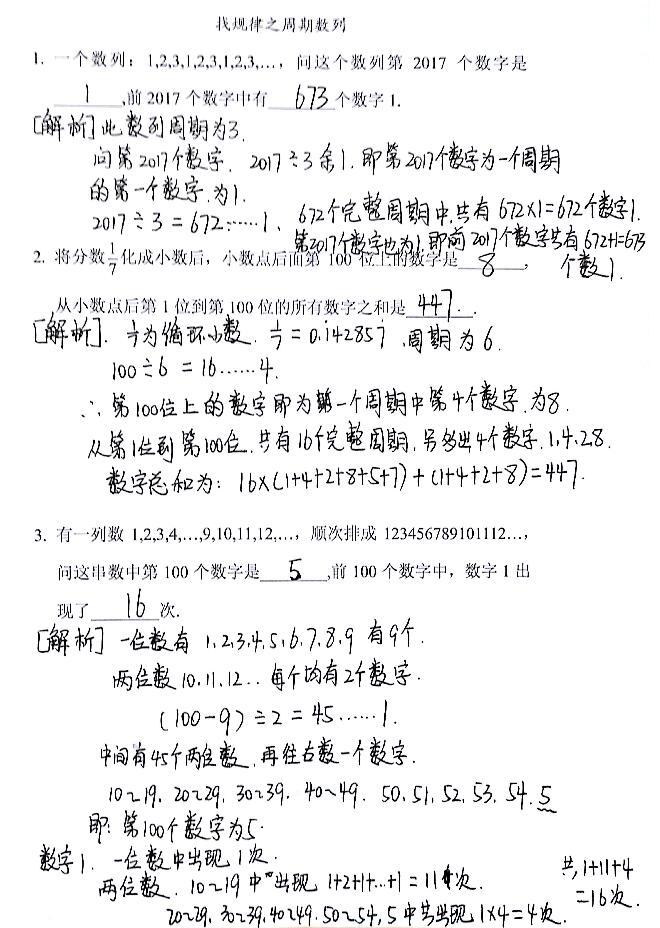 找规律之周期数列
1. 一个数列：1,2,3,1,2,3,1,2,3,…，问这个数列第 2017 个数字是
1 ,前 2017 个数字中有 673 个数字 1.
[解析] 此数列周期为3.
问第2017个数字. 2017÷3余1. 即第2017个数字为一个周期
的第一个数字.为1.
2017÷3=672……1. 672个完整周期中.共有 672×1=672个数字1.
第2017个数字也为1.即前2017个数字共有672+1=673
个数1.
2. 将分数1/7化成小数后，小数点后面第 100 位上的数字是 8 ，
从小数点后第 1 位到第 100 位的所有数字之和是 447 .
[解析]. 1/7为循环小数. 1/7=0.1̇42857̇ .周期为6.
100÷6=16……4.
∴第100位上的数字即为第一个周期中第4个数字.为8.
从第1位到第100位.共有16个完整周期.另多出4个数字.1,4,2,8.
数字总和为: 16×(1+4+2+8+5+7)+(1+4+2+8)=447.
3. 有一列数 1,2,3,4,…,9,10,11,12,…，顺次排成 123456789101112…,
问这串数中第 100 个数字是 5 ,前 100 个数字中，数字 1 出
现了 16 次.
[解析] 一位数有 1.2.3.4.5.6.7.8.9 有9个.
两位数10.11.12... 每个均有2个数字.
(100-9)÷2=45……1.
中间有45个两位数.再往右数一个数字.
10~19. 20~29. 30~39. 40~49. 50.51.52.53.54.5
即:第100个数字为5.
数字1. 一位数中出现1次.
两位数. 10~19中"1"出现 1+2+1+…+1=11次.
20~29.30~39.40~49.50~54,5中共出现1×4=4次.
共,1+11+4
=16次.